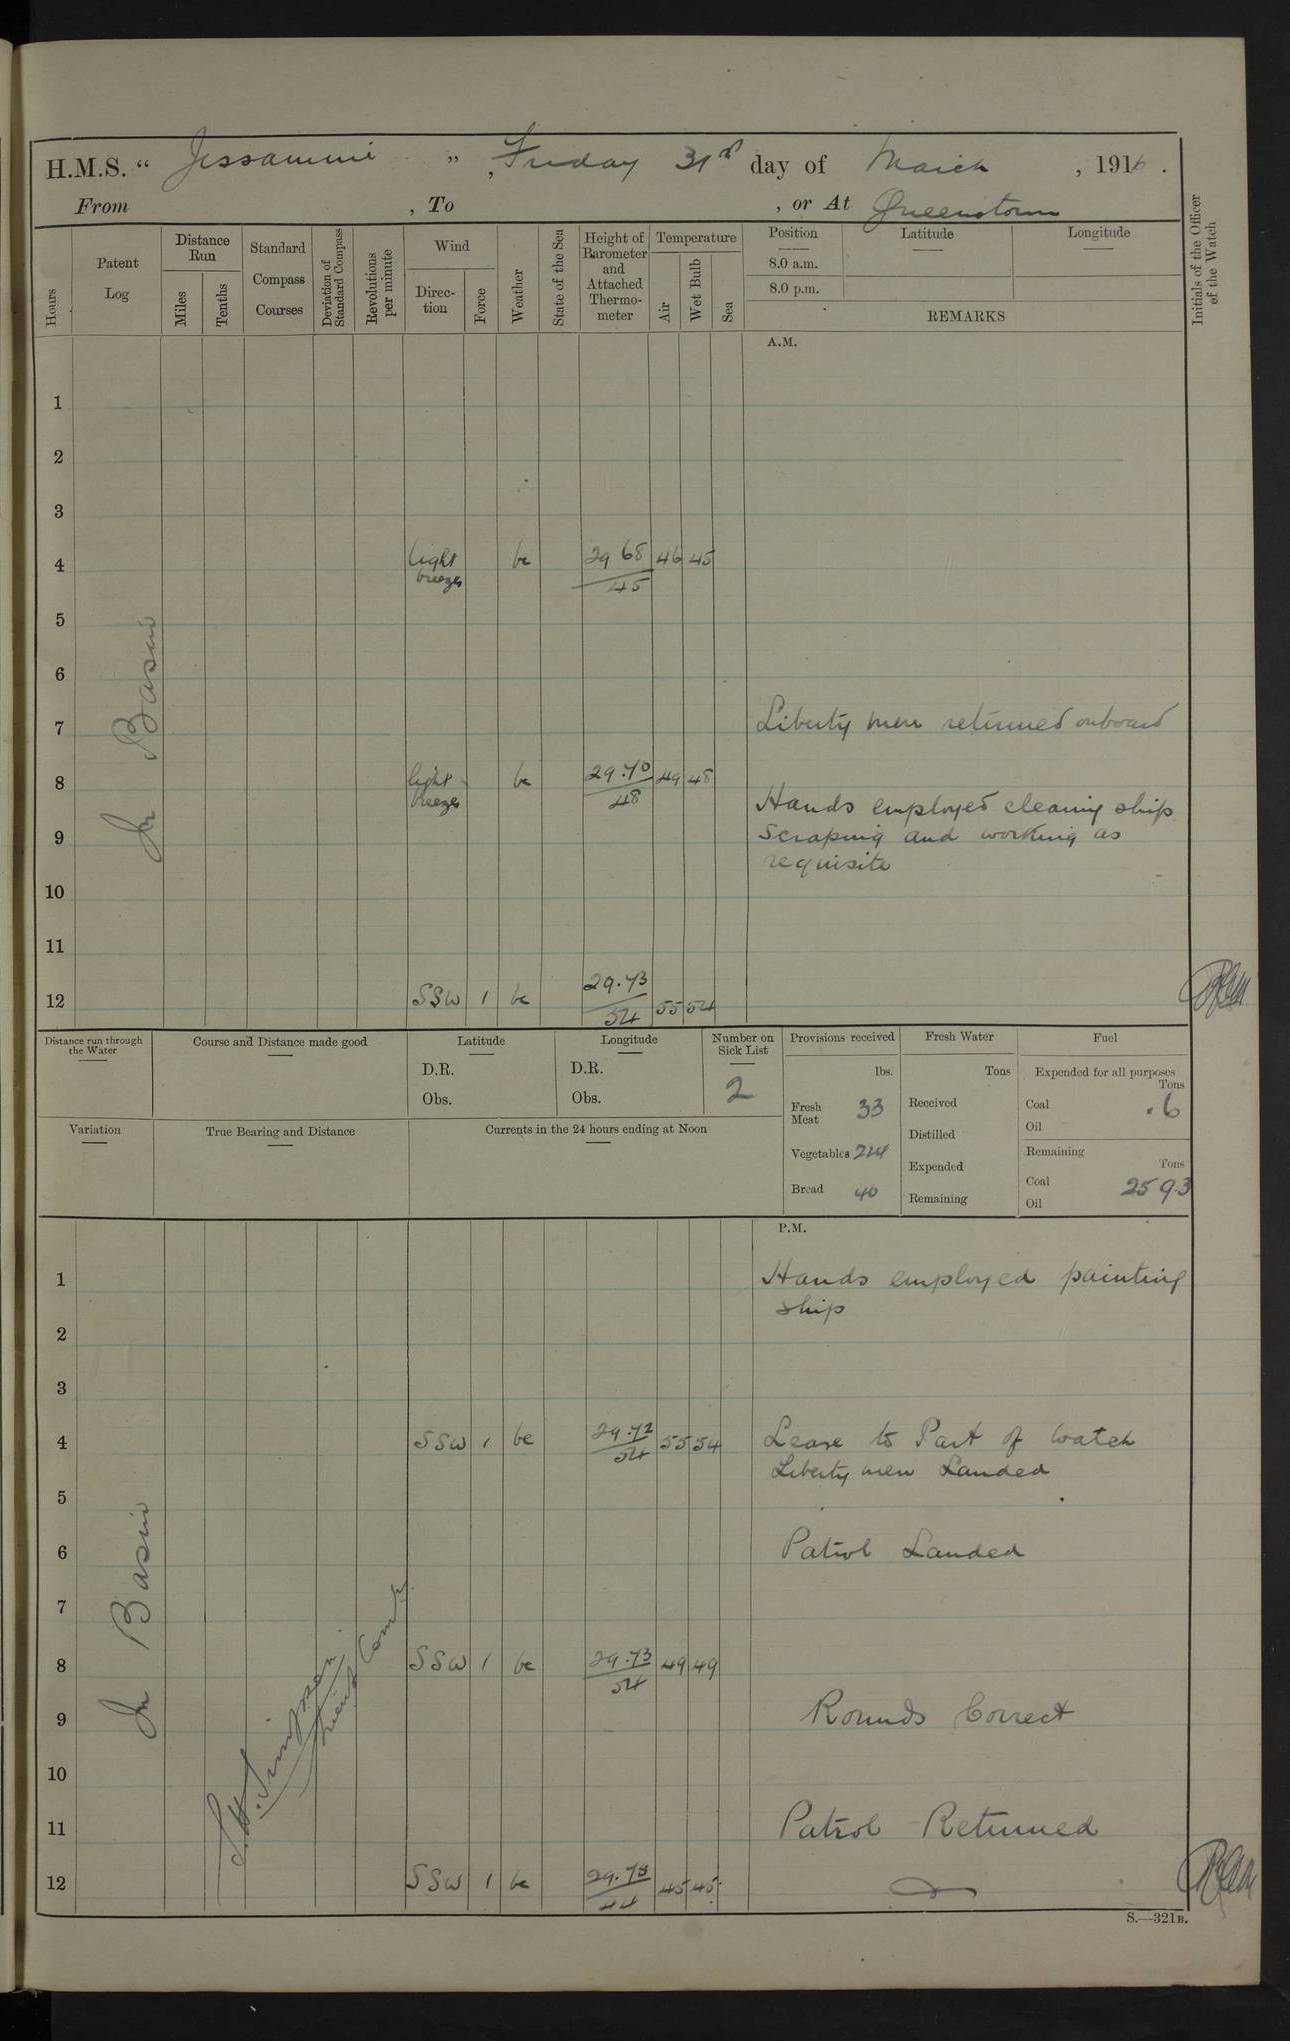 H.M.S. “ Jessamine ” , Friday 31st day of March , 1916 .
From , To , or At Queenstown
Hours
Patent Log
Distance Run
Miles
Tenths
Standard Compass Courses
Deviation of Standard Compass
Revolutions per minute
Wind
Direc-tion
Force
Weather
State of the Sea
Height of Barometer and Attached Thermo-meter
Temperature
Air
Wet Bulb
Sea
Position
8.0 a.m.
8.0 p.m.
Latitude
Longitude
REMARKS
Initials of the Officer of the Watch
A.M.
In Basin
1
2
3
4 light breezes bc 29 68 / 45 46 45
5
6
7 Liberty men returned onboard
8 light breezes bc 29.70 / 48 49 48
Hands employed cleaning ship
9 scraping and working as
requisite
10
11
12 SSW 1 bc 29.73 / 54 55 54
Distance run through the Water
Course and Distance made good
Latitude
D.R.
Obs.
Longitude
D.R.
Obs.
Number on Sick List
2
Variation
True Bearing and Distance
Currents in the 24 hours ending at Noon
Provisions received
lbs.
Fresh Meat 33
Vegetables 224
Bread 40
Fresh Water
Tons
Received
Distilled
Expended
Remaining
Fuel
Expended for all purposes
Tons
Coal .6
Oil
Remaining
Tons
Coal 259.3
Oil
P.M.
In Basin
1 Hands employed painting
ship
2
3
4 SSW 1 bc 29.72 / 54 55 54 Leave to Part of Watch
Liberty men Landed
5
6 Patrol Landed
7
8 SSW 1 bc 29.73 / 54 49 49
9 Rounds Correct
10
11 Patrol Returned
12 SSW 1 bc 29.78 / 44 45 45
S.H. Simpson
Lieut Comdr
S.—321B.